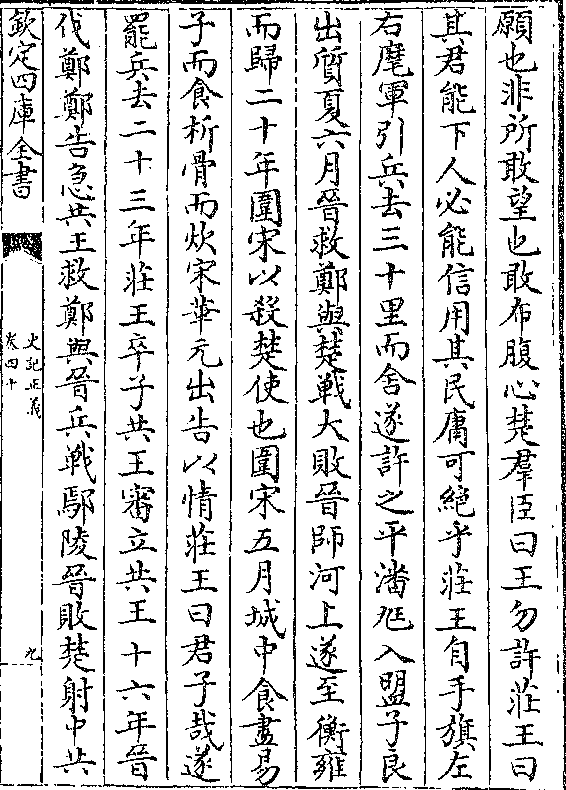 願也非所敢望也敢布腹心楚羣臣曰王勿許莊王曰
其君能下人必能信用其民庸可絶乎莊王自手旗左
右麾軍引兵去三十里而舍遂許之平潘尫入盟子良
出質夏六月晉救鄭與楚戰大敗晉師河上遂至衡雍
而歸二十年圍宋以殺楚使也圍宋五月城中食盡易
子而食析骨而炊宋華元出告以情莊王曰君子哉遂
罷兵去二十三年莊王卒子共王審立共王十六年晉
伐鄭鄭告急共王救鄭與晉兵戰鄢陵晉敗楚射中共
欽定四庫全書
史記正義
卷四十
九